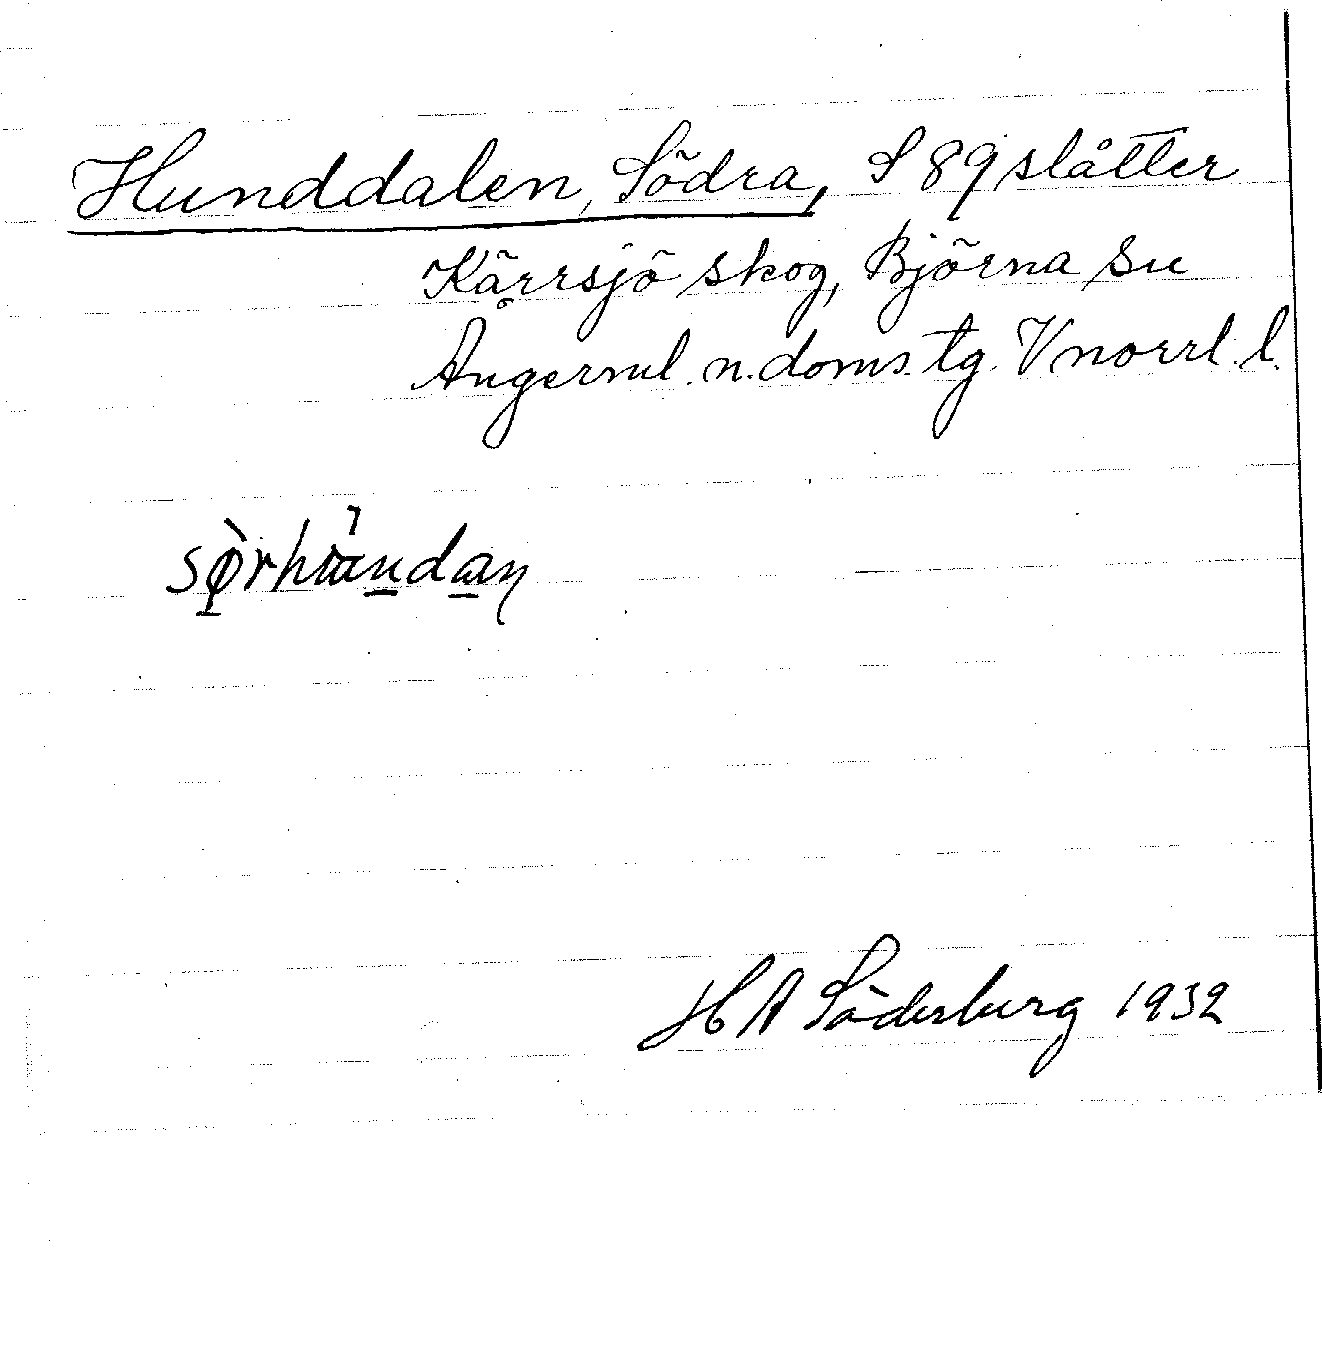 Hunddalen, Södra, S 89 slåtter
Kärrsjö skog, Björna sn
Ångerml. n. doms. tg. Vnorrl. l.
H A Söderberg 1932